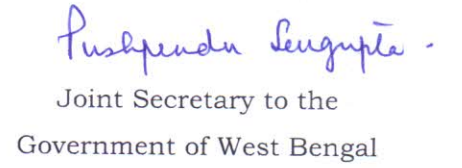 Pushpendu Sengupta.
Joint Secretary to the
Government of West Bengal